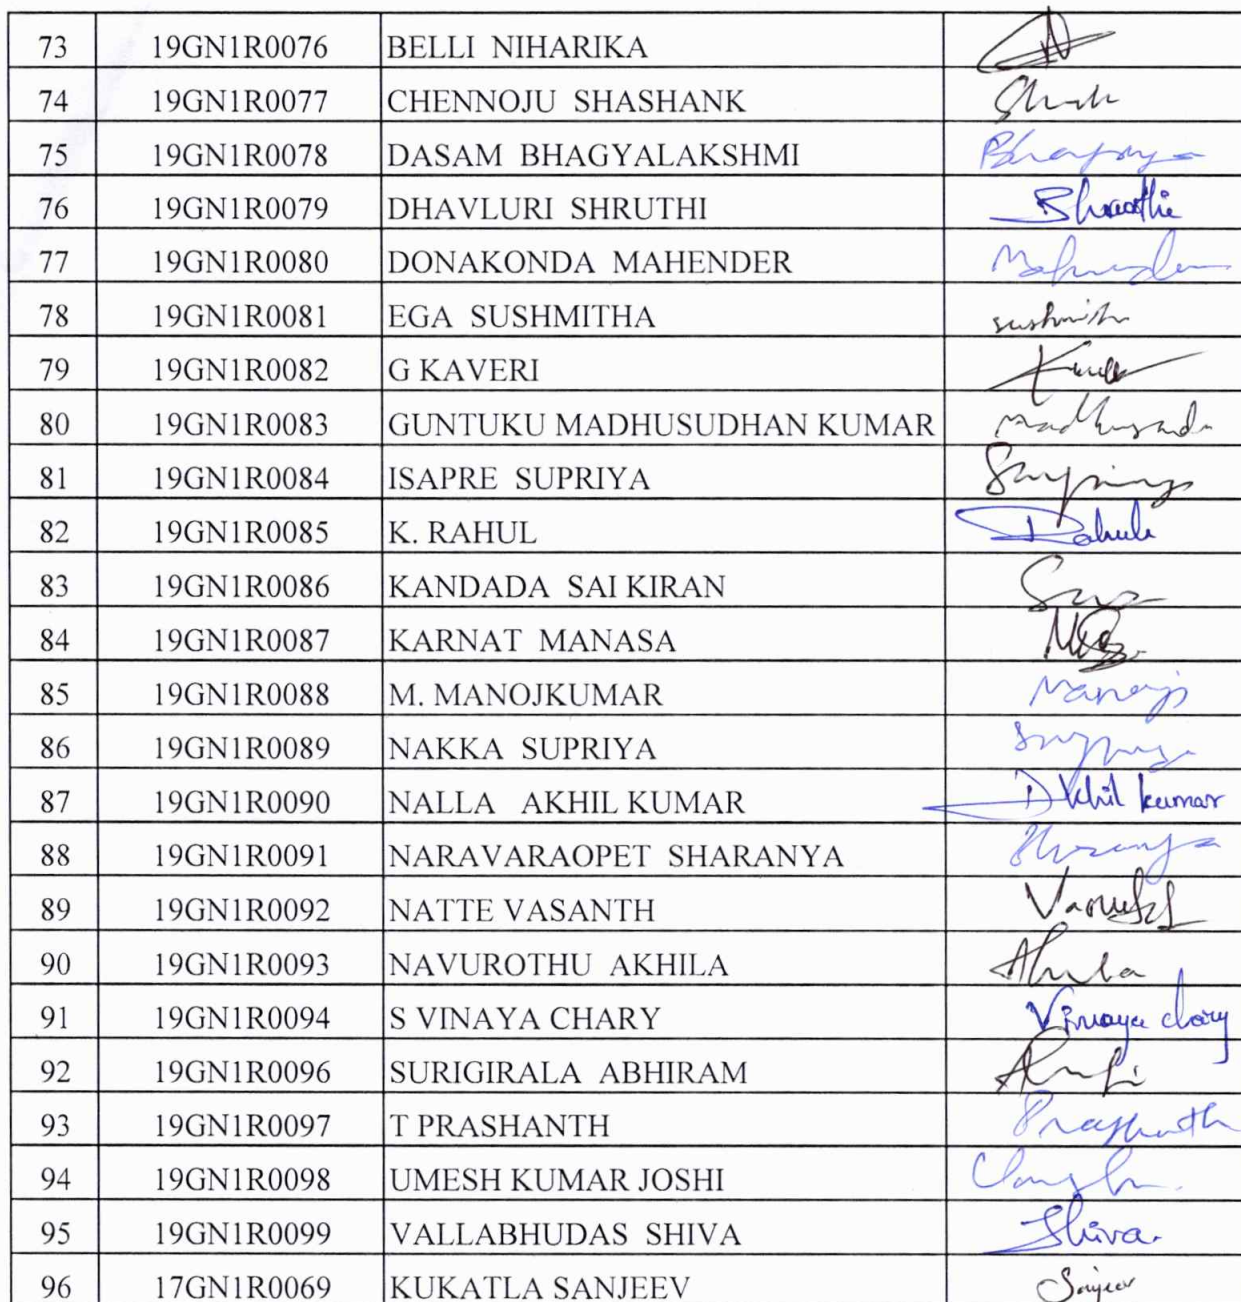 73 19GN1R0076 BELLI NIHARIKA
74 19GN1R0077 CHENNOJU SHASHANK
75 19GN1R0078 DASAM BHAGYALAKSHMI
76 19GN1R0079 DHAVLURI SHRUTHI
77 19GN1R0080 DONAKONDA MAHENDER
78 19GN1R0081 EGA SUSHMITHA
79 19GN1R0082 G KAVERI
80 19GN1R0083 GUNTUKU MADHUSUDHAN KUMAR
81 19GN1R0084 ISAPRE SUPRIYA
82 19GN1R0085 K. RAHUL
83 19GN1R0086 KANDADA SAI KIRAN
84 19GN1R0087 KARNAT MANASA
85 19GN1R0088 M. MANOJKUMAR Manoj
86 19GN1R0089 NAKKA SUPRIYA
87 19GN1R0090 NALLA AKHIL KUMAR Akhil kumar
88 19GN1R0091 NARAVARAOPET SHARANYA
89 19GN1R0092 NATTE VASANTH
90 19GN1R0093 NAVUROTHU AKHILA
91 19GN1R0094 S VINAYA CHARY Vinaya chary
92 19GN1R0096 SURIGIRALA ABHIRAM
93 19GN1R0097 T PRASHANTH
94 19GN1R0098 UMESH KUMAR JOSHI
95 19GN1R0099 VALLABHUDAS SHIVA Shiva.
96 17GN1R0069 KUKATLA SANJEEV Sanjeev